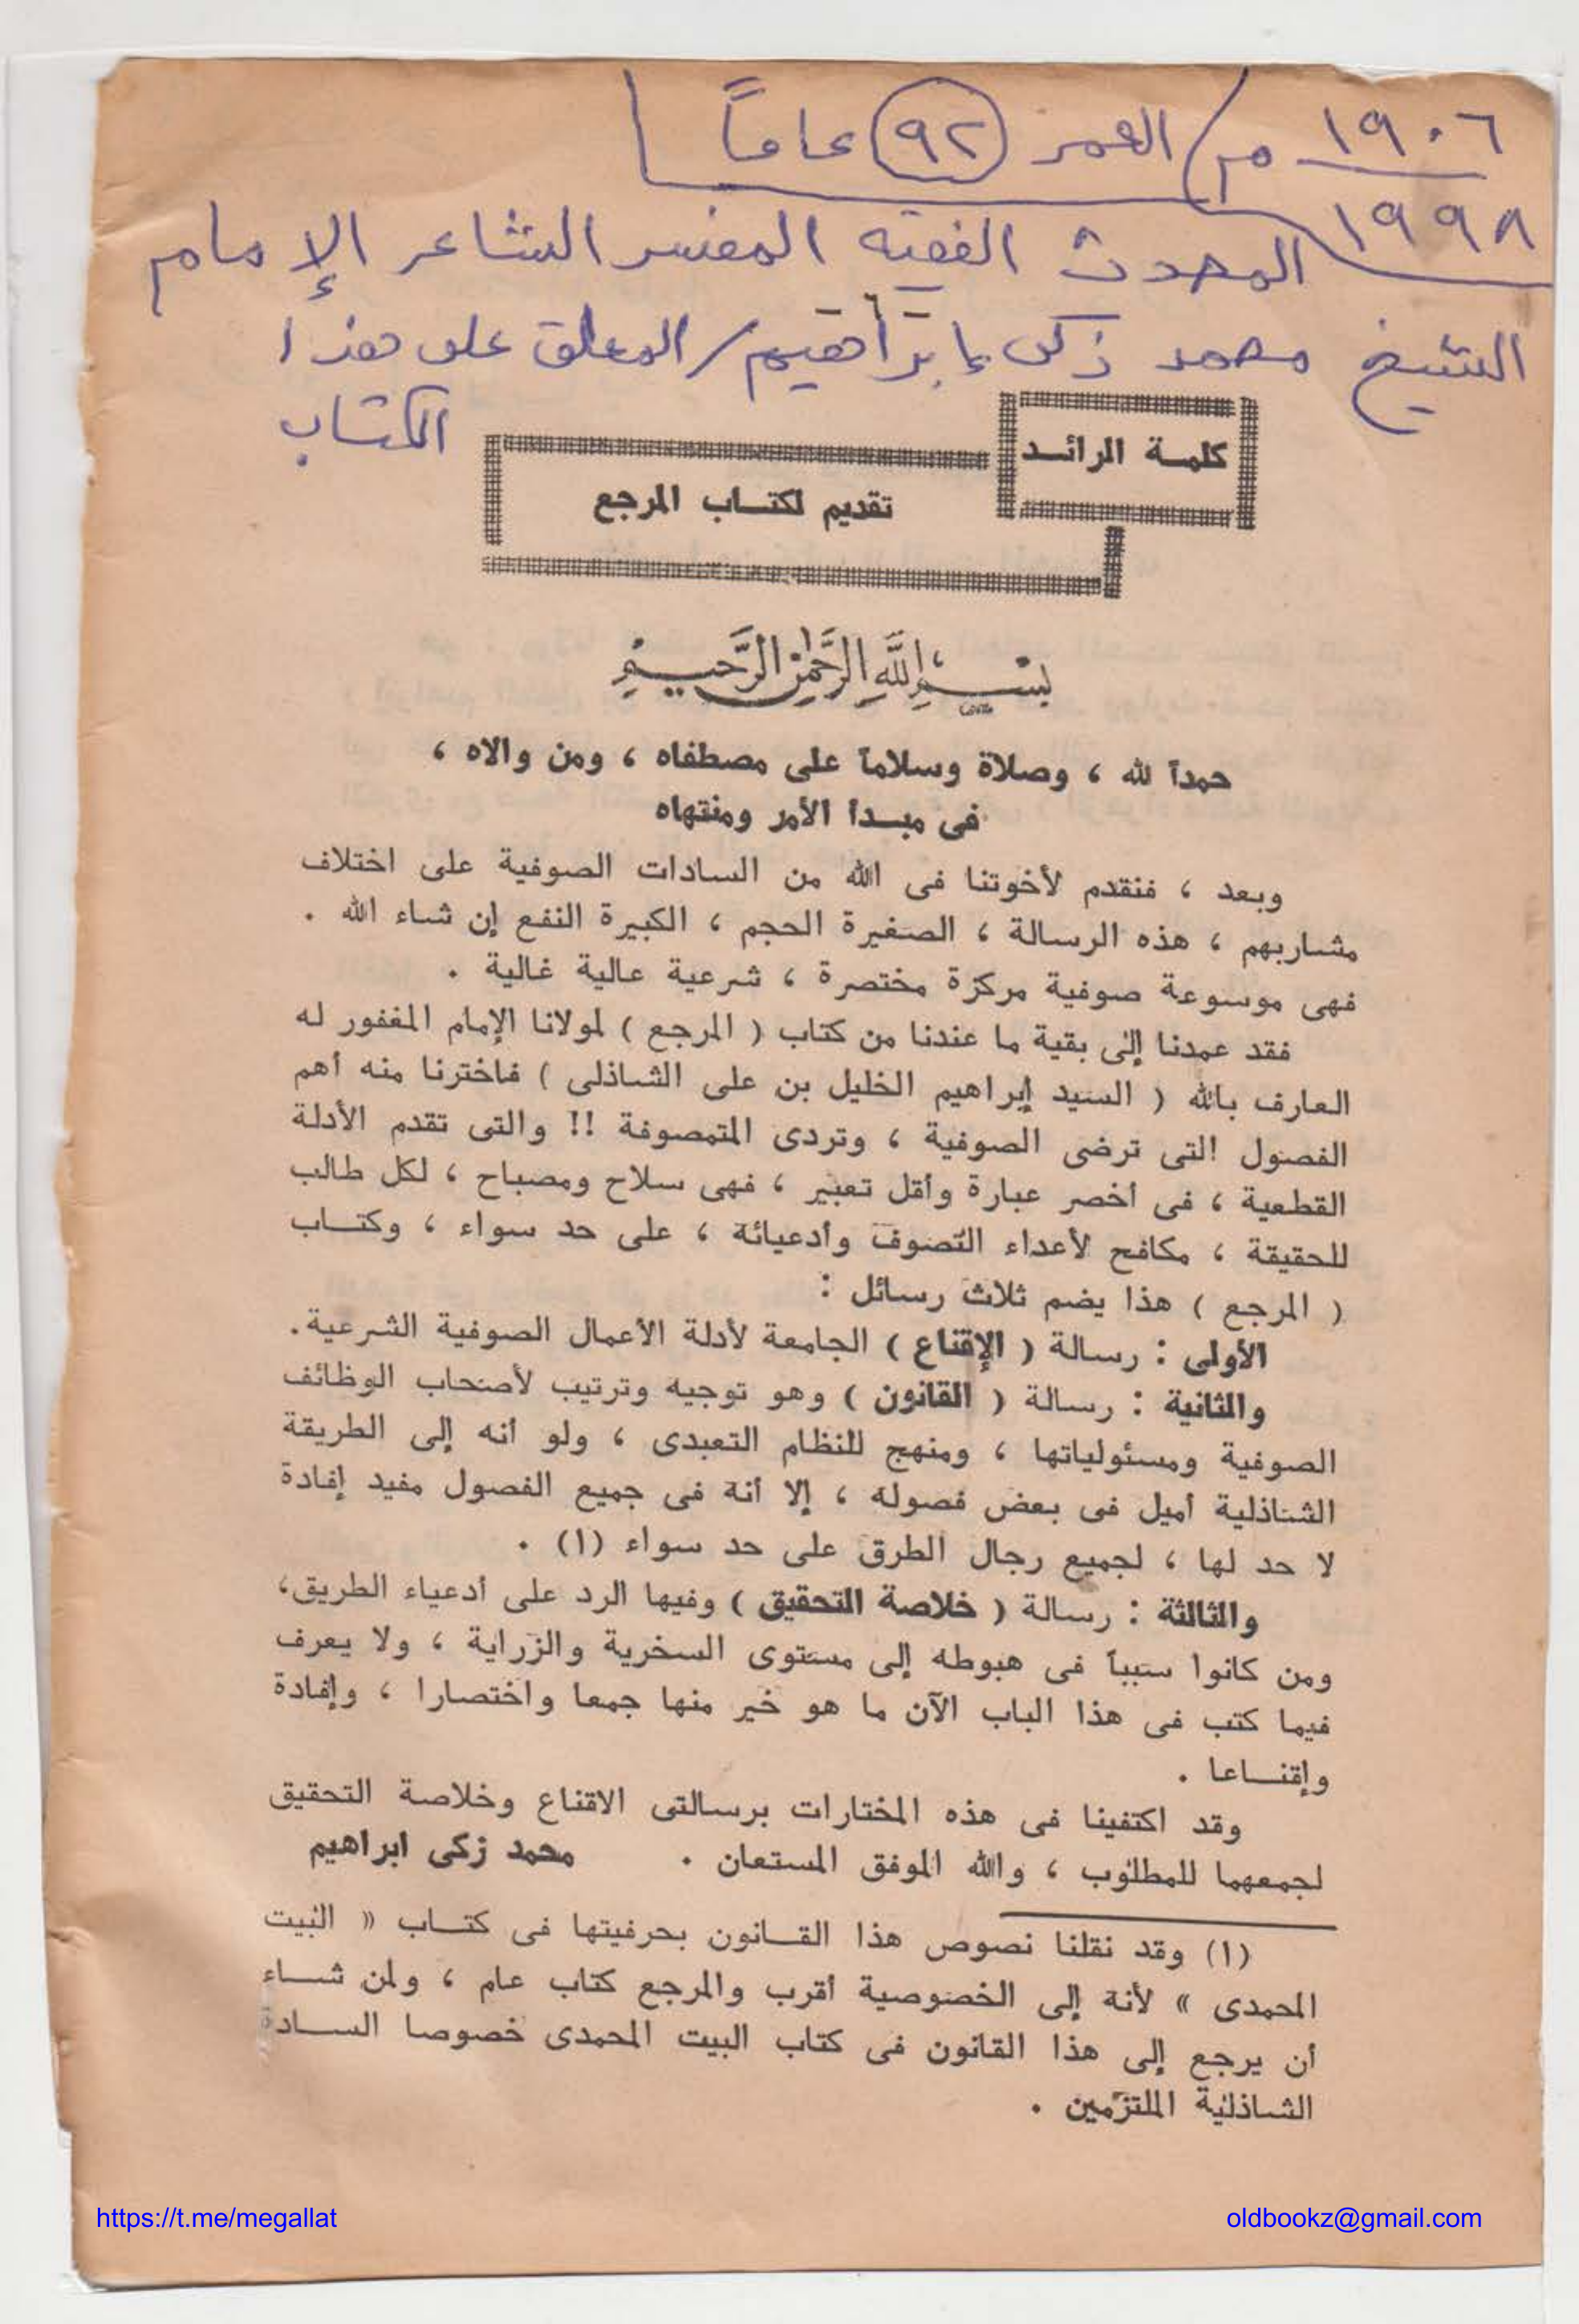 ١٩٠٦ م / العمر ٩٢ عاماً
١٩٩٨
المحدث الفقيه المفسر الشاعر الإمام
الشيخ محمد زكى إبراهيم / المعلق على هذا
الكتاب
كلمة الرائد
تقديم لكتاب المرجع
بسم الله الرحمن الرحيم
حمداً لله ، وصلاة وسلاماً على مصطفاه ، ومن والاه ،
فى مبدأ الأمر ومنتهاه
وبعد ، فنقدم لأخوتنا فى الله من السادات الصوفية على اختلاف
مشاربهم ، هذه الرسالة ، الصغيرة الحجم ، الكبيرة النفع إن شاء الله .
فهى موسوعة صوفية مركزة مختصرة ، شرعية عالية غالية .
فقد عمدنا إلى بقية ما عندنا من كتاب ( المرجع ) لمولانا الإمام المغفور له
العارف بالله ( السيد إبراهيم الخليل بن على الشاذلى ) فاخترنا منه أهم
الفصول التى ترضى الصوفية ، وتردى المتمصوفة !! والتى تقدم الأدلة
القطعية ، فى أخصر عبارة وأقل تعبير ، فهى سلاح ومصباح ، لكل طالب
للحقيقة ، مكافح لأعداء التصوف وأدعيائه ، على حد سواء ، وكتاب
( المرجع ) هذا يضم ثلاث رسائل :
الأولى : رسالة ( الإقناع ) الجامعة لأدلة الأعمال الصوفية الشرعية .
والثانية : رسالة ( القانون ) وهو توجيه وترتيب لأصحاب الوظائف
الصوفية ومسئولياتها ، ومنهج للنظام التعبدى ، ولو أنه إلى الطريقة
الشاذلية أميل فى بعض فصوله ، إلا أنه فى جميع الفصول مفيد إفادة
لا حد لها ، لجميع رجال الطرق على حد سواء (١) .
والثالثة : رسالة ( خلاصة التحقيق ) وفيها الرد على أدعياء الطريق ،
ومن كانوا سبباً فى هبوطه إلى مستوى السخرية والزراية ، ولا يعرف
فيما كتب فى هذا الباب الآن ما هو خير منها جمعا واختصارا ، وإفادة
وإقناعا .
وقد اكتفينا فى هذه المختارات برسالتى الاقناع وخلاصة التحقيق
لجمعهما للمطلوب ، والله الموفق المستعان . محمد زكى ابراهيم
(١) وقد نقلنا نصوص هذا القانون بحرفيتها فى كتاب « البيت
المحمدى » لأنه إلى الخصوصية أقرب والمرجع كتاب عام ، ولمن شاء
أن يرجع إلى هذا القانون فى كتاب البيت المحمدى خصوصا السادة
الشاذلية الملتزمين .
https://t.me/megallat
oldbookz@gmail.com